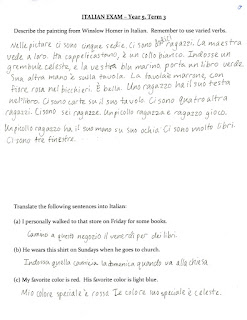 ITALIAN EXAM - Year 5, Term 3
Describe the painting from Winslow Homer in Italian. Remember to use varied verbs.
Nelle picture ci sono cinque sedie. Ci sono ragazzi. La maestra
vede a loro. Ha cappelli castano, e un collo bianco. Indosse un
grembiule celeste, e la vestra blu marino porta un libro verde.
Sua altra mano è sulla tavola. La tavola è marrone, con
fiore rosa nel bicchieri. È bella. Uno ragazzo ha sua testa
nel libro. Ci sono carte su il suo tavolo. Ci sono quatro altra
ragazzi. Ci sono sei ragazze. Un piccollo ragazza e ragazzo gioco.
Un picollo ragazzo ha il suo mano su suo ochio. Ci sono molto libri.
Ci sono tre finestre.
Translate the following sentences into Italian:
(a) I personally walked to that store on Friday for some books.
Camino a questo negozio il venerdì per dei libri.
(b) He wears this shirt on Sundays when he goes to church.
Indossa quella camicia la domenica quando va alla chiesa.
(c) My favorite color is red. His favorite color is light blue.
Mio colore speciale è rosso. Il colore suo speciale è celeste.